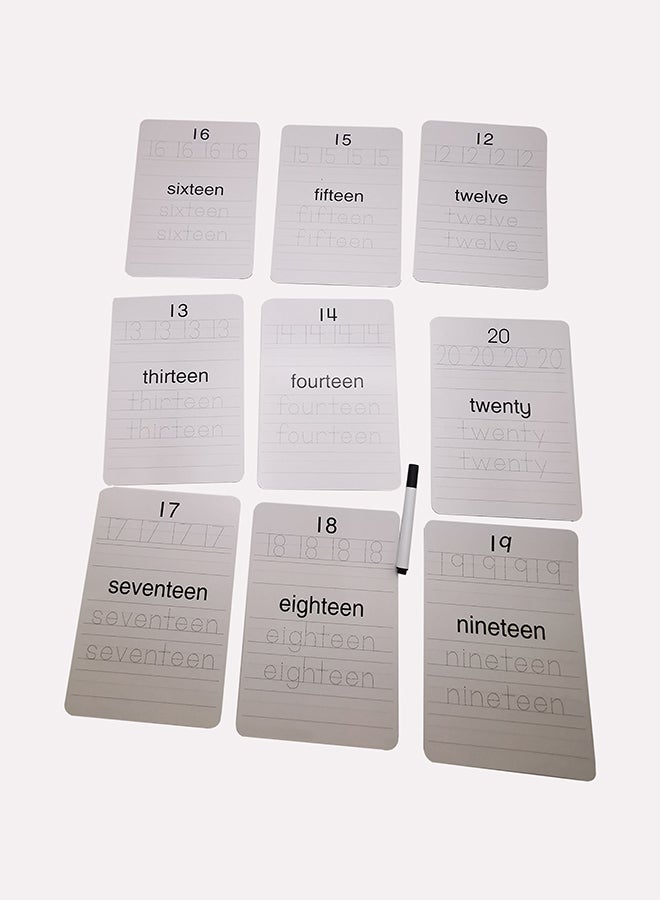 16
16 16 16 16
sixteen
sixteen
sixteen
15
15 15 15 15
fifteen
fifteen
fifteen
12
12 12 12 12
twelve
twelve
twelve
13
13 13 13 13
thirteen
thirteen
thirteen
14
14 14 14 14
fourteen
fourteen
fourteen
20
20 20 20 20
twenty
twenty
twenty
17
17 17 17 17
seventeen
seventeen
seventeen
18
18 18 18 18
eighteen
eighteen
eighteen
19
19 19 19 19
nineteen
nineteen
nineteen